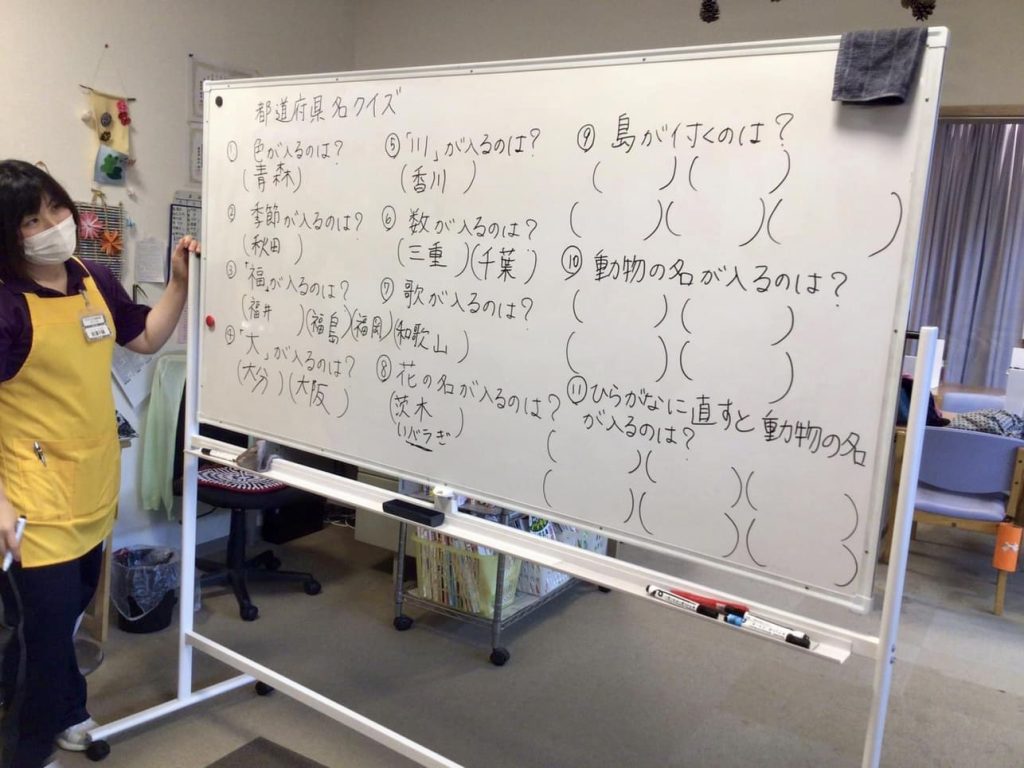 都道府県名クイズ
① 色が入るのは?
(青森)
② 季節が入るのは?
(秋田 )
③「福」が入るのは?
(福井 )(福島)(福岡)
④「大」が入るのは?
(大分 )(大阪 )
⑤「川」が入るのは?
(香川 )
⑥ 数が入るのは?
(三重 )(千葉 )
⑦ 歌が入るのは?
(和歌山 )
⑧ 花の名が入るのは?
(茨木 )
いばらぎ
⑨ 島が付くのは?
( )( )
( )( )( )
⑩ 動物の名が入るのは?
( )( )
( )( )
⑪ ひらがなに直すと動物の名
が入るのは?
( )( )( )
( )( )( )